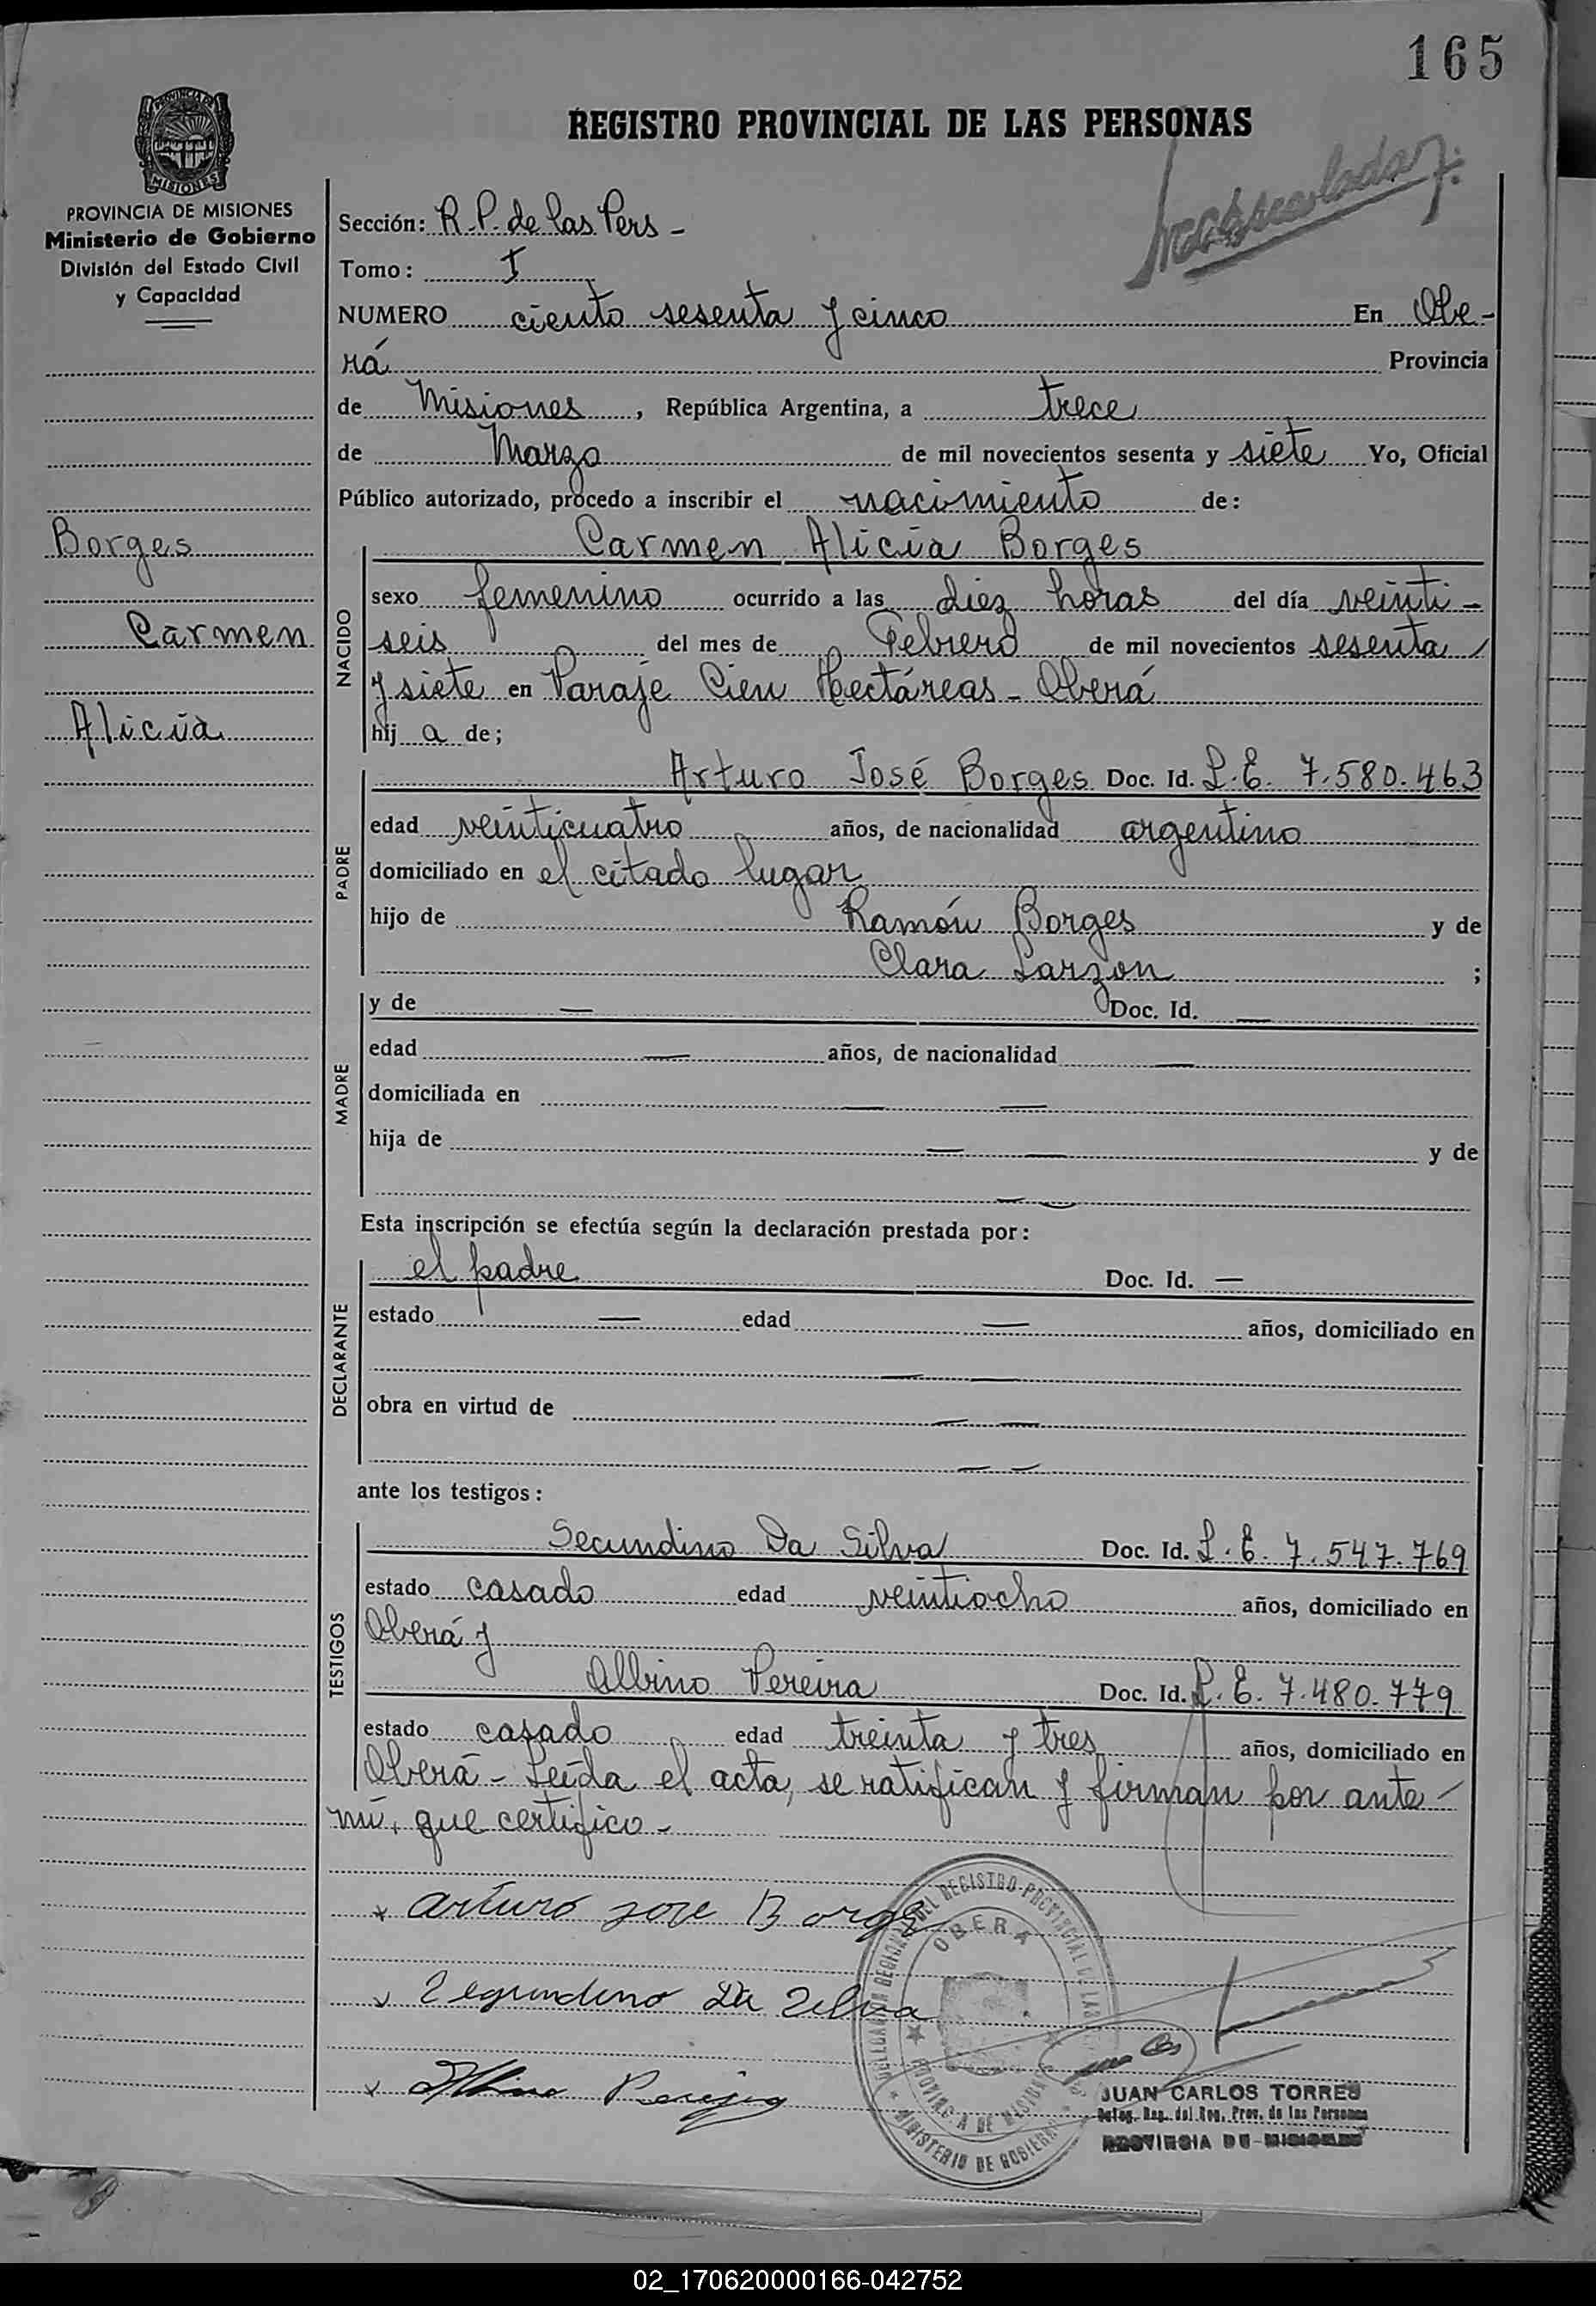 165
REGISTRO PROVINCIAL DE LAS PERSONAS
PROVINCIA DE MISIONES
MISIONES
PROVINCIA DE MISIONES
Ministerio de Gobierno
División del Estado Civil
y Capacidad
Borges
Carmen
Alicia
Sección: R.P. de las Pers -
Tomo: I
NUMERO ciento sesenta y cinco En Obe-
rá Provincia
de Misiones, República Argentina, a trece
de Marzo de mil novecientos sesenta y siete Yo, Oficial
Público autorizado, procedo a inscribir el nacimiento de:
NACIDO
Carmen Alicia Borges
sexo femenino ocurrido a las diez horas del día veinti-
seis del mes de Febrero de mil novecientos sesenta
y siete en Paraje Cien Hectáreas - Oberá
hij a de;
PADRE
Arturo José Borges Doc. Id. L.E. 7.580.463
edad veinticuatro años, de nacionalidad argentino
domiciliado en el citado lugar
hijo de Ramón Borges y de
Clara Larzon ;
MADRE
y de — Doc. Id. —
edad — años, de nacionalidad —
domiciliada en — —
hija de — — y de
— —
Esta inscripción se efectúa según la declaración prestada por:
DECLARANTE
el padre Doc. Id. —
estado — edad — años, domiciliado en
— —
obra en virtud de — —
— —
ante los testigos:
TESTIGOS
Secundino Da Silva Doc. Id. L.E. 7.547.769
estado casado edad veintiocho años, domiciliado en
Oberá y
Albino Pereira Doc. Id. L.E. 7.480.779
estado casado edad treinta y tres años, domiciliado en
Oberá - Leída el acta, se ratifican y firman por ante
mí, que certifico -
Arturo jose Borge
Segundino Da Silva
Albino Pereira
DELEGACION REGIONAL DEL REGISTRO PROVINCIAL DE LAS
OBERA
PROVINCIA DE MISIONES
MINISTERIO DE GOBIERNO
JUAN CARLOS TORRES
Deleg. Reg. del Reg. Prov. de las Personas
PROVINCIA DE MISIONES
02_170620000166-042752